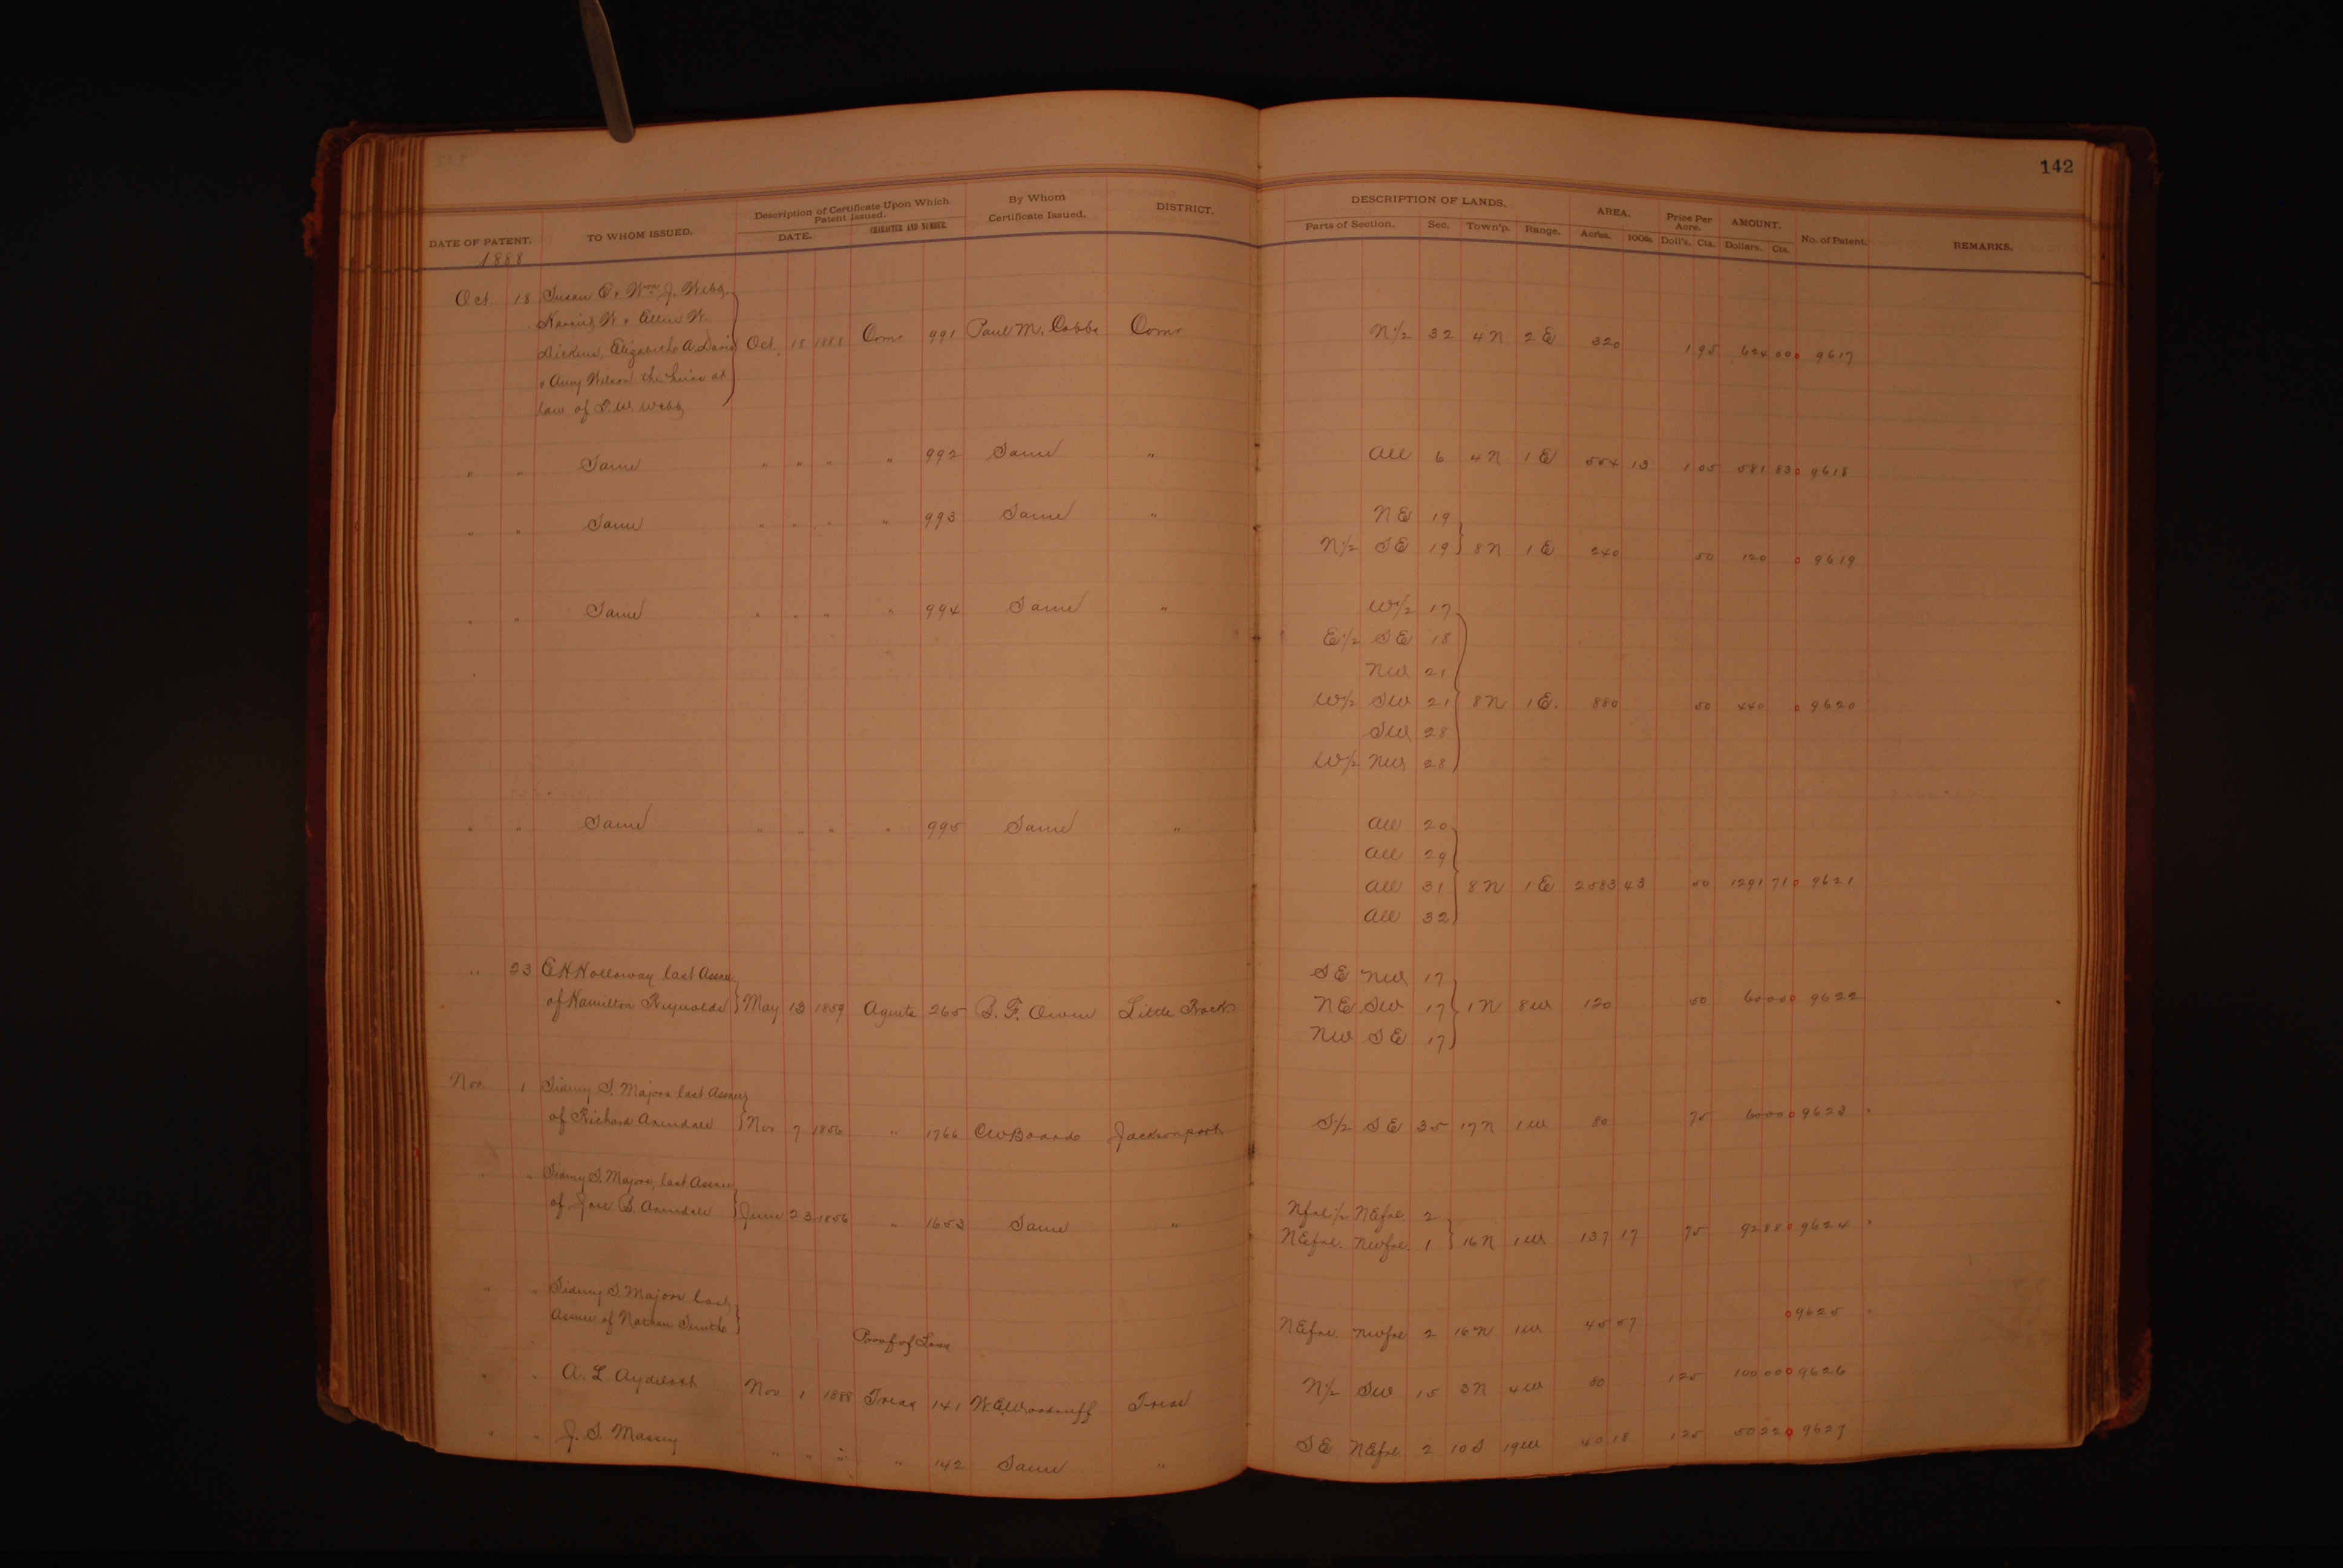 142
DATE OF PATENT. TO WHOM ISSUED. Description of Certificate Upon Which Patent Issued. DATE. CHARACTER AND NUMBER. By Whom Certificate Issued. DISTRICT. DESCRIPTION OF LANDS. Parts of Section. Sec. Town'p. Range. AREA. Acres. 100ths. Price Per Acre. Doll's. Cts. AMOUNT. Dollars. Cts. No. of Patent. REMARKS.
1888
Oct. 18 Susan E & Wm J. Webb,
W. & Ellen W.
Dickens, Elizabeth A. Davis Oct. 18 1888 Comr 991 Paul M. Cobbs Comr N 1/2 32 4N 2E 320 1 95 624 00 9617
& Amy Wilson the heirs at
law of T. W. Webb
" " Same " " " " 992 Same " All 6 4N 1E 554 13 1 05 581 83 9618
" " Same " " " " 993 Same " NE 19
N 1/2 SE 19 8N 1E 240 50 120 9619
" " Same " " " " 994 Same " W 1/2 17
E 1/2 SE 18
NW 21
W 1/2 SW 21 8N 1E. 880 50 440 9620
SW 28
W 1/2 NW 28
" " Same " " " " 995 Same " All 20
All 29
All 31 8N 1E 2583 43 50 1291 71 9621
All 32
" 23 E H Holloway last Assnee SE NW 17
of Hamilton Reynolds May 13 1859 Agents 265 B. F. Owen Little Rock NE SW 17 1N 8W 120 50 60 00 9622
NW SE 17
Nov. 1 Sidney S. Majors last Assnee
of Richard Arendale Nov 7 1856 " 1766 C W Board Jacksonport S 1/2 SE 35 17N 1W 80 75 60 00 9623
" " Sidney S. Majors, last Assnee Nfrl 1/2 NEfrl. 2
of B. Arendale June 23 1856 " 1653 Same " NEfrl. NWfrl. 1 16N 1W 137 17 75 92 88 9624
" " Sidney S. Majors last
Assnee of Nathan Smith NEfrl. NWfrl 2 16N 1W 45 57 9625
Proof of Loss
" " A. L. Aydelott Nov 1 1888 Treas 141 W. E. Woodruff Treas N 1/2 SW 15 3N 4W 80 1 25 100 00 9626
" " J. S. Massey " " " " 142 Same " SE NEfrl 2 10S 19W 40 18 1 25 50 22 9627